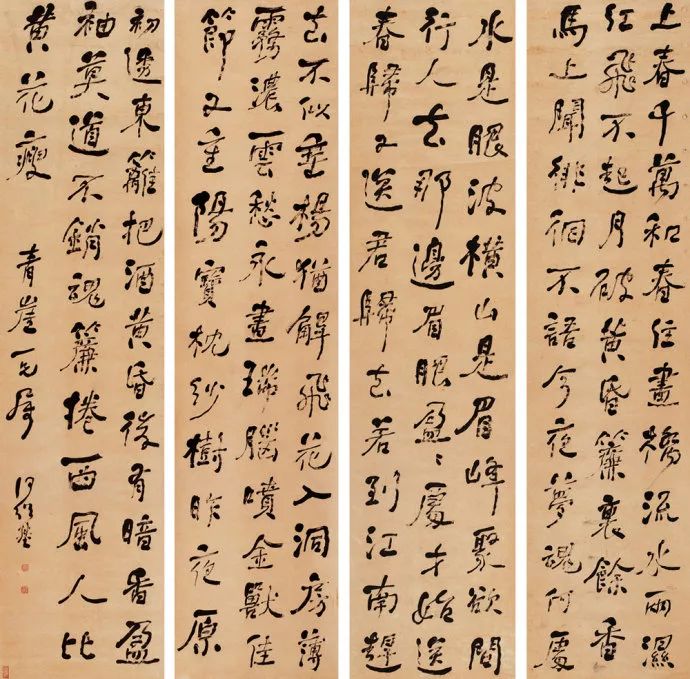 上春千萬和春住畫橋流水雨濕
紅飛不起月破黃昏簾裏餘香
馬上聞徘徊不語今夜夢魂何處
水是眼波橫山是眉峰聚欲問
行人去那邊眉眼盈盈處才始送
春歸又送君歸去若到江南趕
去不似垂楊猶解飛花入洞房薄
霧濃雲愁永晝瑞腦噴金獸佳
節又重陽寶枕紗樹昨夜原
初透東籬把酒黃昏後有暗香盈
袖莫道不銷魂簾捲西風人比
黃花瘦
青崖 屬
何紹基